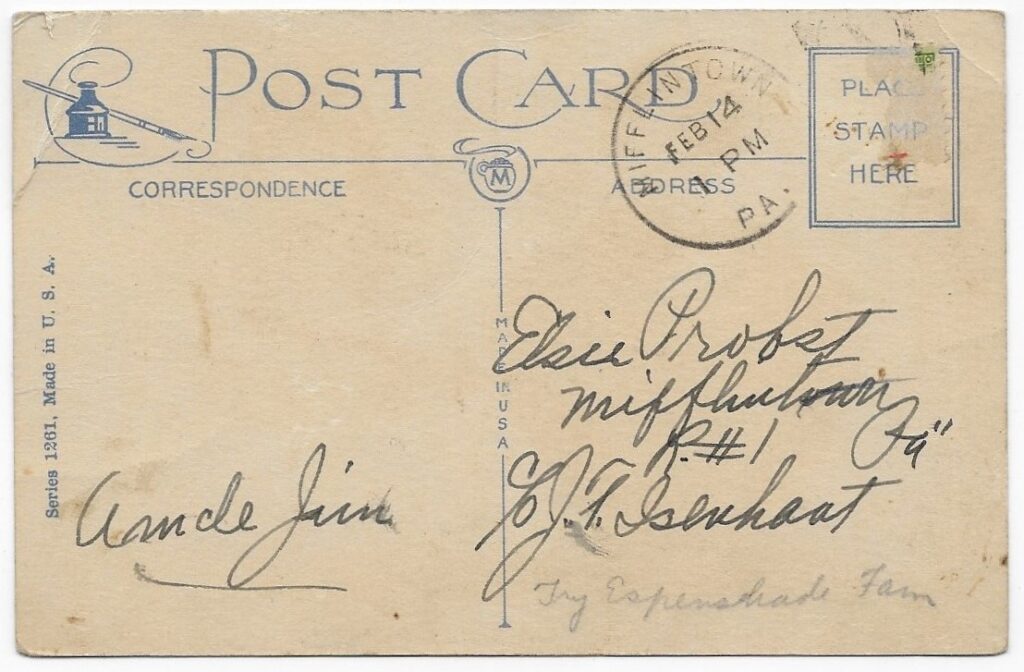 POST CARD
MIFFLINTOWN
FEB 14
1 PM
PA.
PLACE
STAMP
HERE
CORRESPONDENCE
M
ADDRESS
Series 1261, Made in U. S. A.
MADE IN USA
Elsie Probst
Mifflintown
R.#1 Pa"
J. T. Isenhaat
Uncle Jim
Try Espenshade Fam